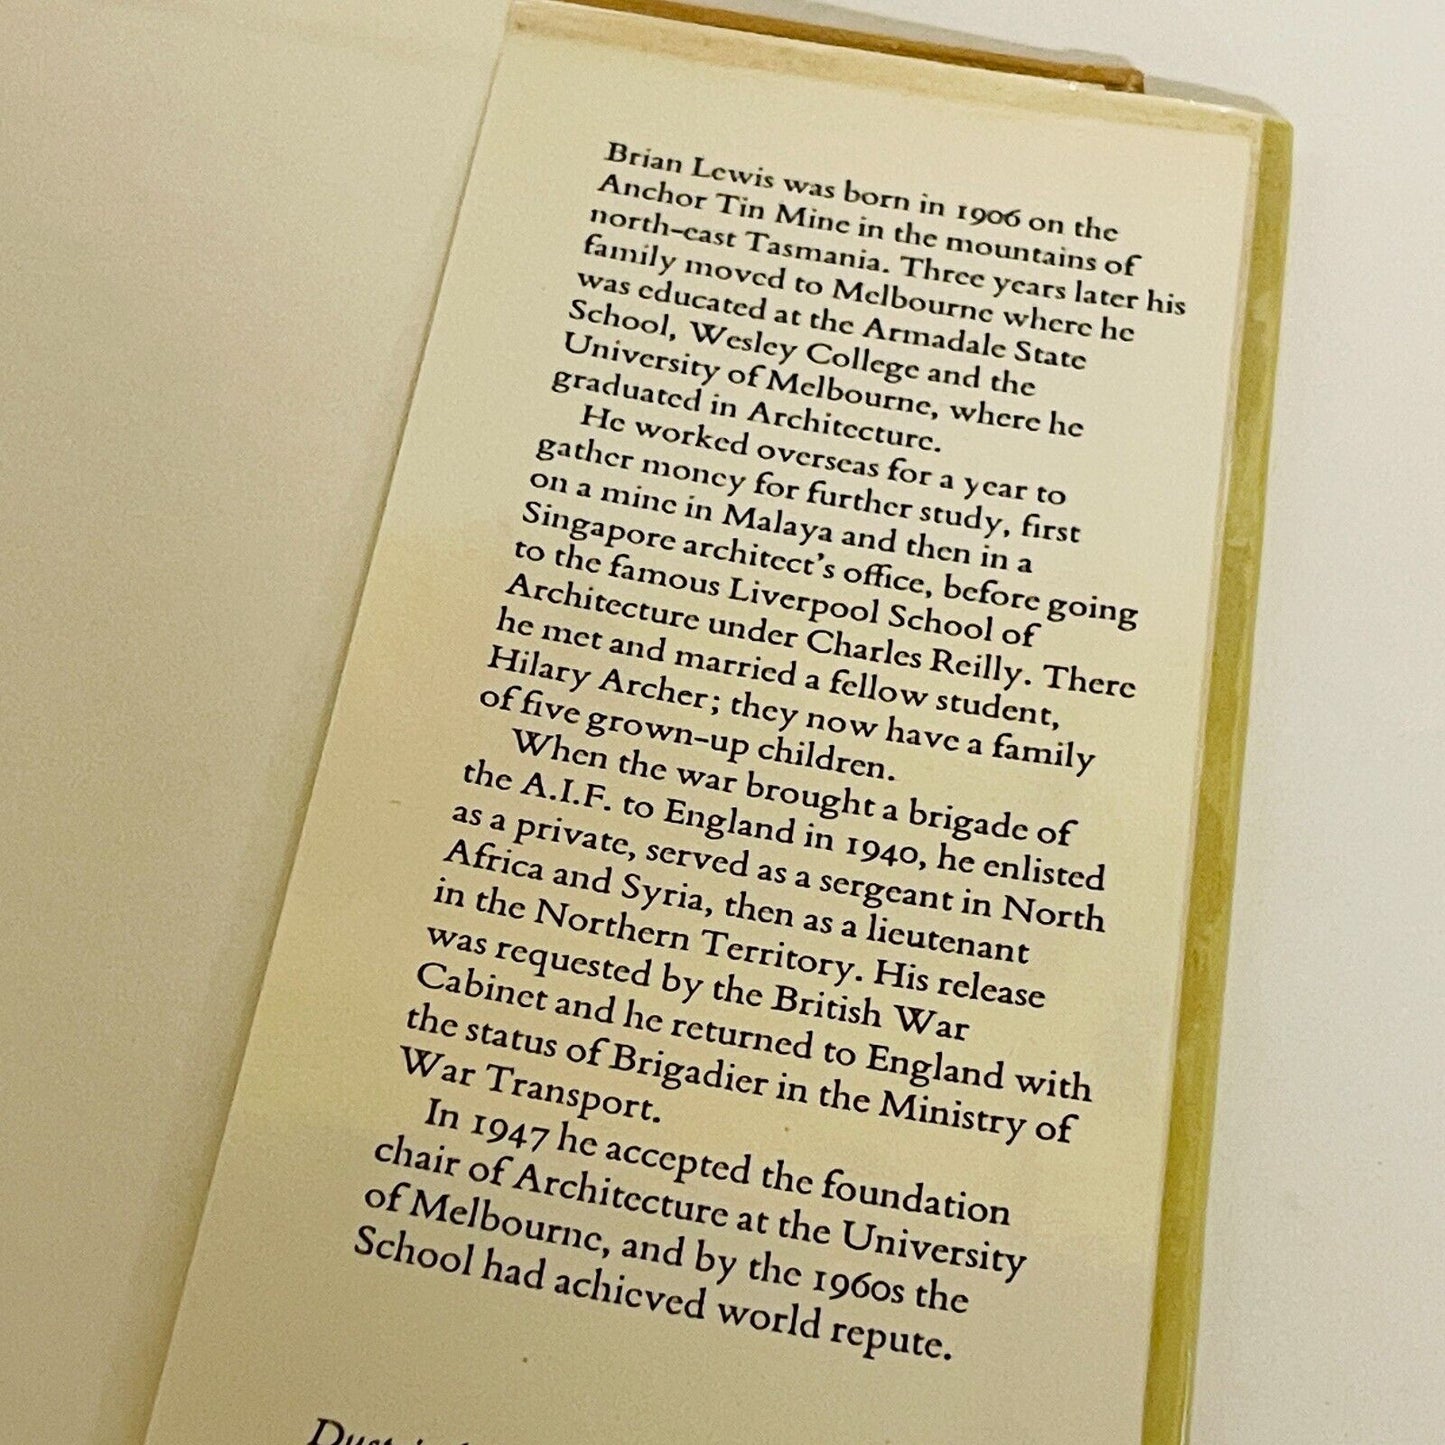 Brian Lewis was born in 1906 on the
Anchor Tin Mine in the mountains of
north-east Tasmania. Three years later his
family moved to Melbourne where he
was educated at the Armadale State
School, Wesley College and the
University of Melbourne, where he
graduated in Architecture.
He worked overseas for a year to
gather money for further study, first
on a mine in Malaya and then in a
Singapore architect's office, before going
to the famous Liverpool School of
Architecture under Charles Reilly. There
he met and married a fellow student,
Hilary Archer; they now have a family
of five grown-up children.
When the war brought a brigade of
the A.I.F. to England in 1940, he enlisted
as a private, served as a sergeant in North
Africa and Syria, then as a lieutenant
in the Northern Territory. His release
was requested by the British War
Cabinet and he returned to England with
the status of Brigadier in the Ministry of
War Transport.
In 1947 he accepted the foundation
chair of Architecture at the University
of Melbourne, and by the 1960s the
School had achieved world repute.